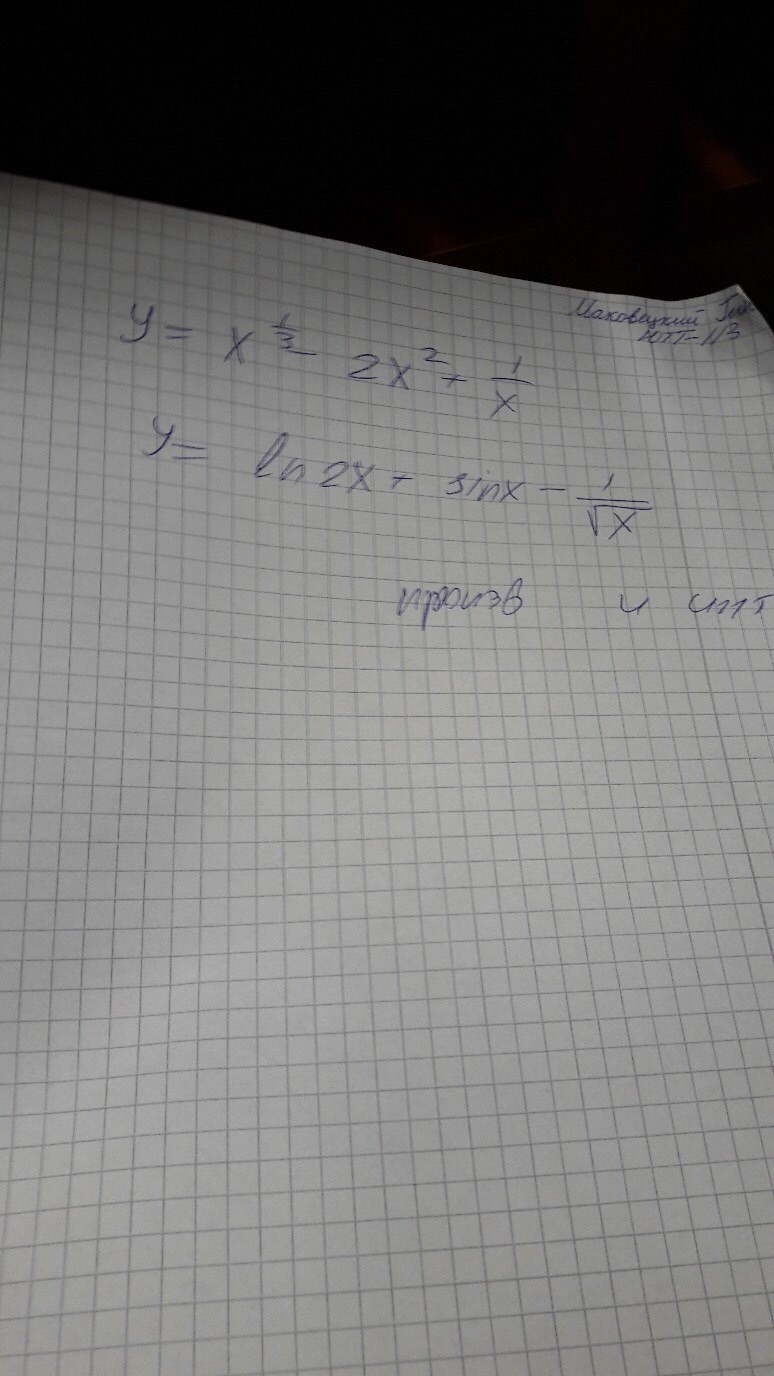 Маковецкий
y = x^{\frac{1}{3}} - 2x^2 + \frac{1}{x}
y = ln 2x + sin x - \frac{1}{\sqrt{x}}
произв и инт